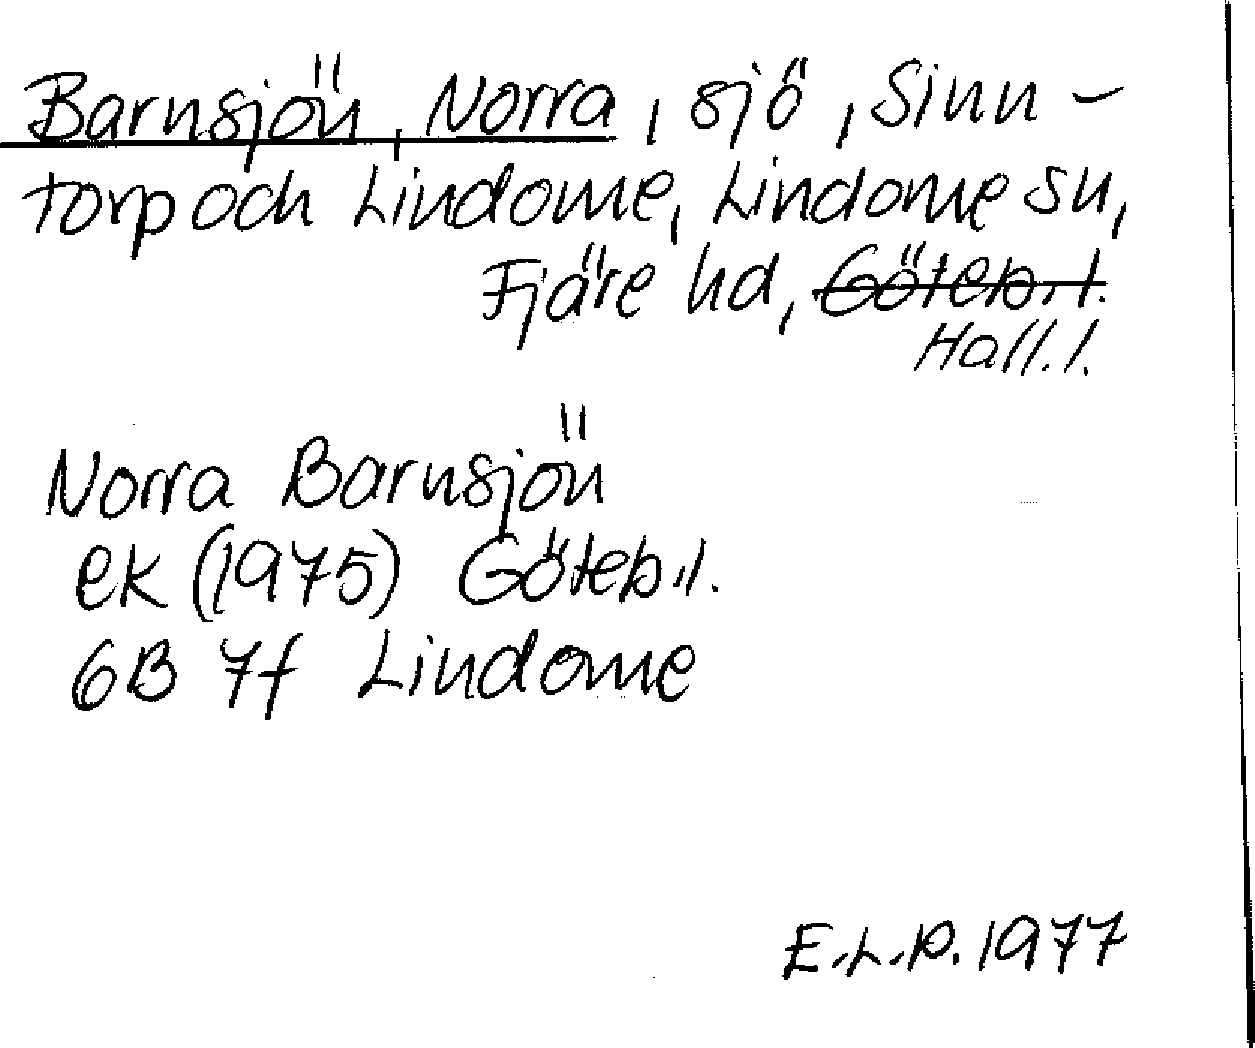 Barnsjön, Norra, sjö, Sinn-
torp och Lindome, Lindome sn,
Fjäre hd, Göteb. l.
Hall. l.
Norra Barnsjön
ek (1975) Göteb. l.
6B 7f Lindome
E.L.P. 1977